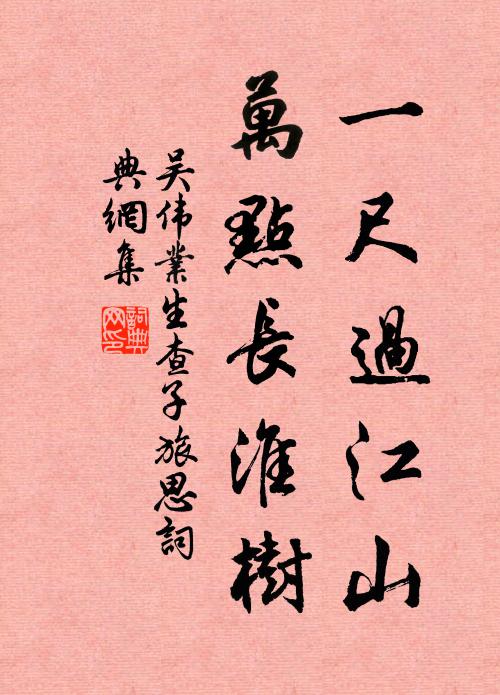 一尺過江山
萬點長淮樹
吴伟業生查子旅思詞
典網集
詞典网印